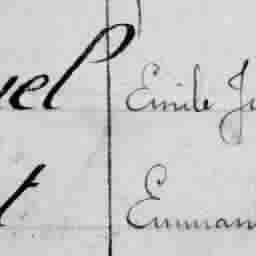 uel Emile Ju
t Emman